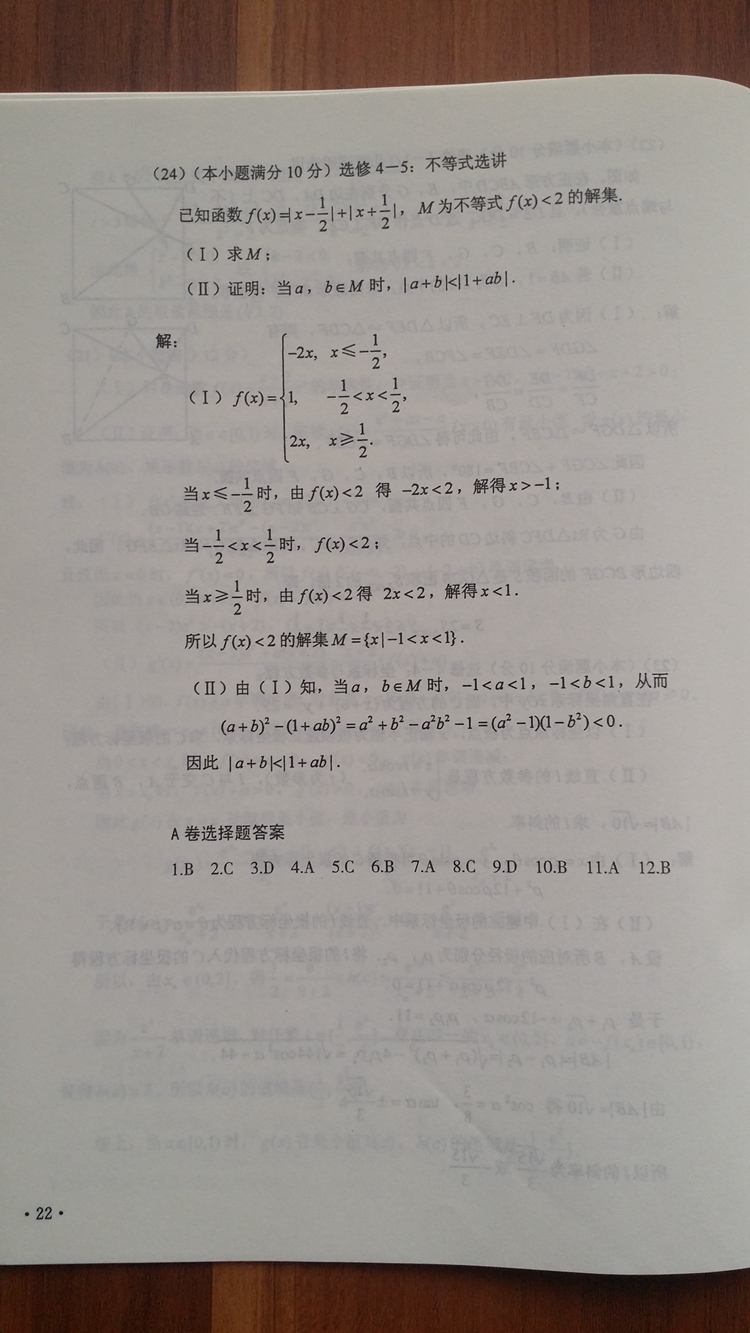 （24）（本小题满分10分）选修4－5：不等式选讲
已知函数 f(x)=|x−1/2|+|x+1/2|，M为不等式 f(x)<2的解集.
（Ⅰ）求M；
（Ⅱ）证明：当a，b∈M时，|a+b|<|1+ab|.
解：
（Ⅰ）f(x)={
−2x, x≤−1/2,
1, −1/2<x<1/2,
2x, x≥1/2.
当x≤−1/2时，由f(x)<2 得 −2x<2，解得x>−1；
当−1/2<x<1/2时，f(x)<2；
当x≥1/2时，由f(x)<2得 2x<2，解得x<1.
所以f(x)<2的解集M={x|−1<x<1}.
（Ⅱ）由（Ⅰ）知，当a，b∈M时，−1<a<1，−1<b<1，从而
(a+b)²−(1+ab)²=a²+b²−a²b²−1=(a²−1)(1−b²)<0.
因此 |a+b|<|1+ab|.
A卷选择题答案
1.B 2.C 3.D 4.A 5.C 6.B 7.A 8.C 9.D 10.B 11.A 12.B
·22·